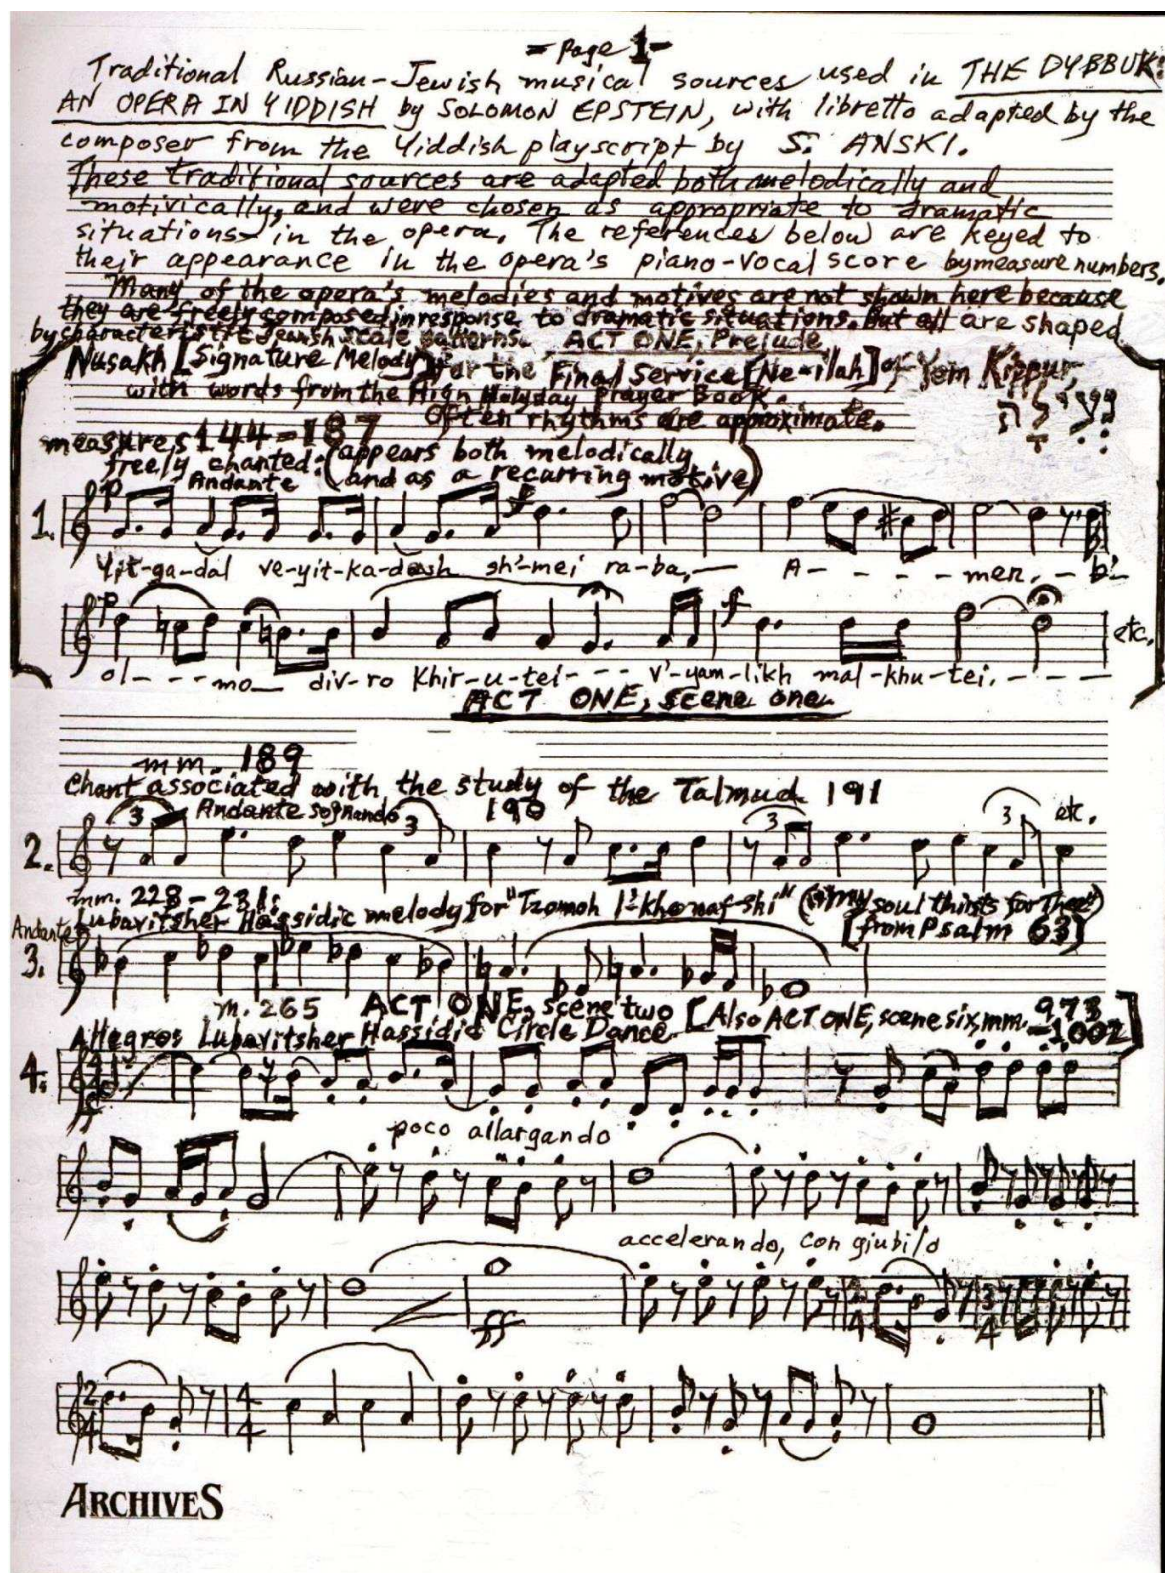 - Page 1 -
Traditional Russian-Jewish musical sources used in THE DYBBUK:
AN OPERA IN YIDDISH by SOLOMON EPSTEIN, with libretto adapted by the
composer from the Yiddish playscript by S. ANSKI.
These traditional sources are adapted both melodically and
motivically, and were chosen as appropriate to dramatic
situations in the opera. The references below are keyed to
their appearance in the opera's piano-vocal score by measure numbers.
Many of the opera's melodies and motives are not shown here because
they are freely composed in response to dramatic situations. But all are shaped
by characteristic Jewish scale patterns. ACT ONE, Prelude
Nusakh [Signature Melody] for the Final Service [Ne-ilah] of Yom Kippur,
with words from the High Holyday Prayer Book.
Often rhythms are approximate.
measures 144-187
freely chanted: (appears both melodically
Andante and as a recurring motive)
p f
1.
Yit-ga-dal ve-yit-ka-dash sh'-mei ra-ba,— A- - - - - men. - b'-
p f etc.
ol- - - - mo— div-ro khir-u-tei- - - - v'-yam-likh mal-khu-tei. - - - -
ACT ONE, scene one
mm. 189
Chant associated with the study of the Talmud 191
3 Andante sognando 3 190 3 3 etc.
2.
mm. 228-231:
Lubavitsher Hassidic melody for "Tzomoh l'kho naf-shi" ("my soul thirsts for Thee")
Andante [from Psalm 63]
3.
m. 265 ACT ONE, scene two [Also ACT ONE, scene six, mm. 973
Allegro: Lubavitsher Hassidic Circle Dance -1002]
4. 4 4
poco allargando
accelerando, con giubilo
ff 2 4 3 4
2 4 4 4
ARCHIVES